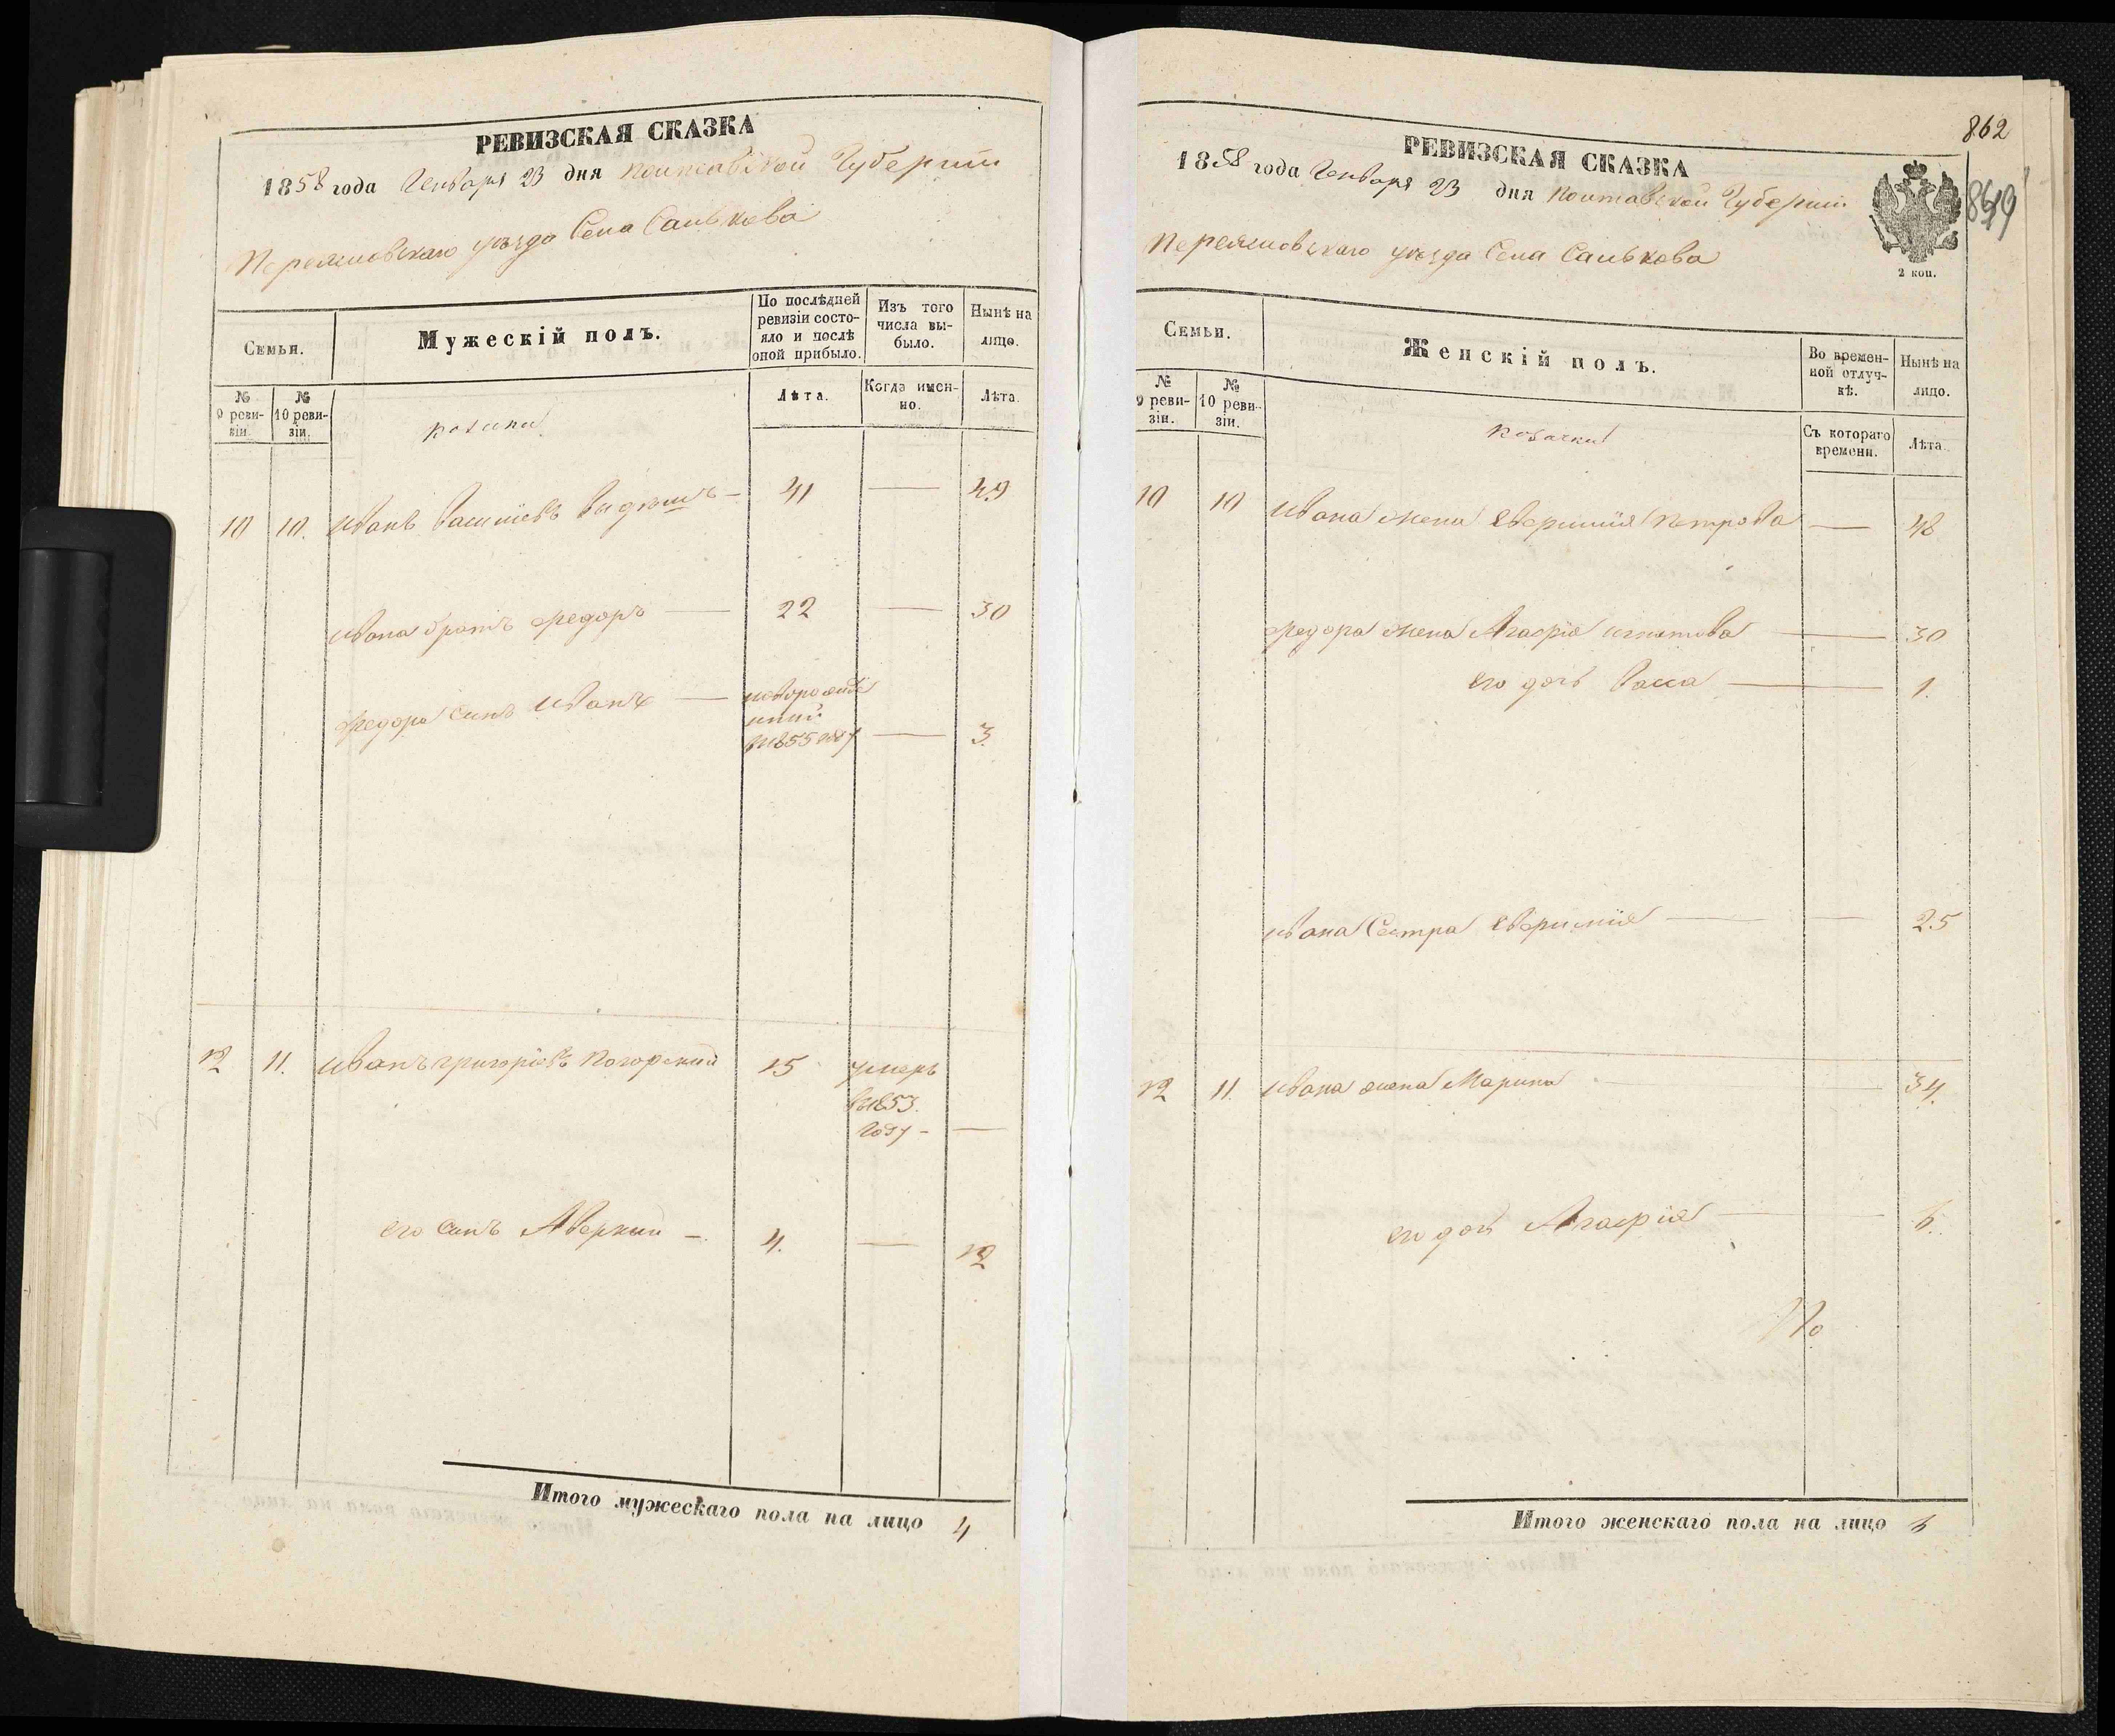 РЕВИЗСКАЯ СКАЗКА
1858 года Генваря 23 дня Полтавской Губернии
Переяславскаго уѣзда Села Салькова
Семьи.
Мужескій полъ.
По послѣдней ревизіи состояло и послѣ оной прибыло.
Изъ того числа выбыло.
Нынѣ на лицо.
№ 9 ревизіи.
№ 10 ревизіи.
козаки
Лѣта.
Когда именно.
Лѣта.
10 10. Иванъ Васильевъ 41 — 49
Ивана братъ Федоръ — 22 — 30
Федора сынъ Иванъ — новорожденный в 1855 году — 3.
12 11. Иванъ Григорьевъ 25 умеръ в 1853. году — —
его сынъ Аверкий — 4. — 12
Итого мужескаго пола на лицо 4
862
849
РЕВИЗСКАЯ СКАЗКА
1858 года Генваря 23 дня Полтавской Губернии
Переяславскаго уѣзда Села Салькова
2 коп.
Семьи.
Женскій полъ.
Во временной отлучкѣ.
Нынѣ на лицо.
№ 9 ревизіи.
№ 10 ревизіи.
козачки
Съ котораго времени.
Лѣта.
10 10 Ивана жена Евфимия Петрова — 48
Федора жена Агафія Игнатова — 30
его дочь Васса — 1.
Ивана Сестра Евфимия — — 25
12 11. Ивана жена Марина — — 34.
его дочь Агафія — — 6.
По
Итого женскаго пола на лицо 6